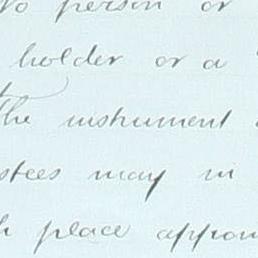 No person or
holder or a
the instrument
stees may in
h place appoin